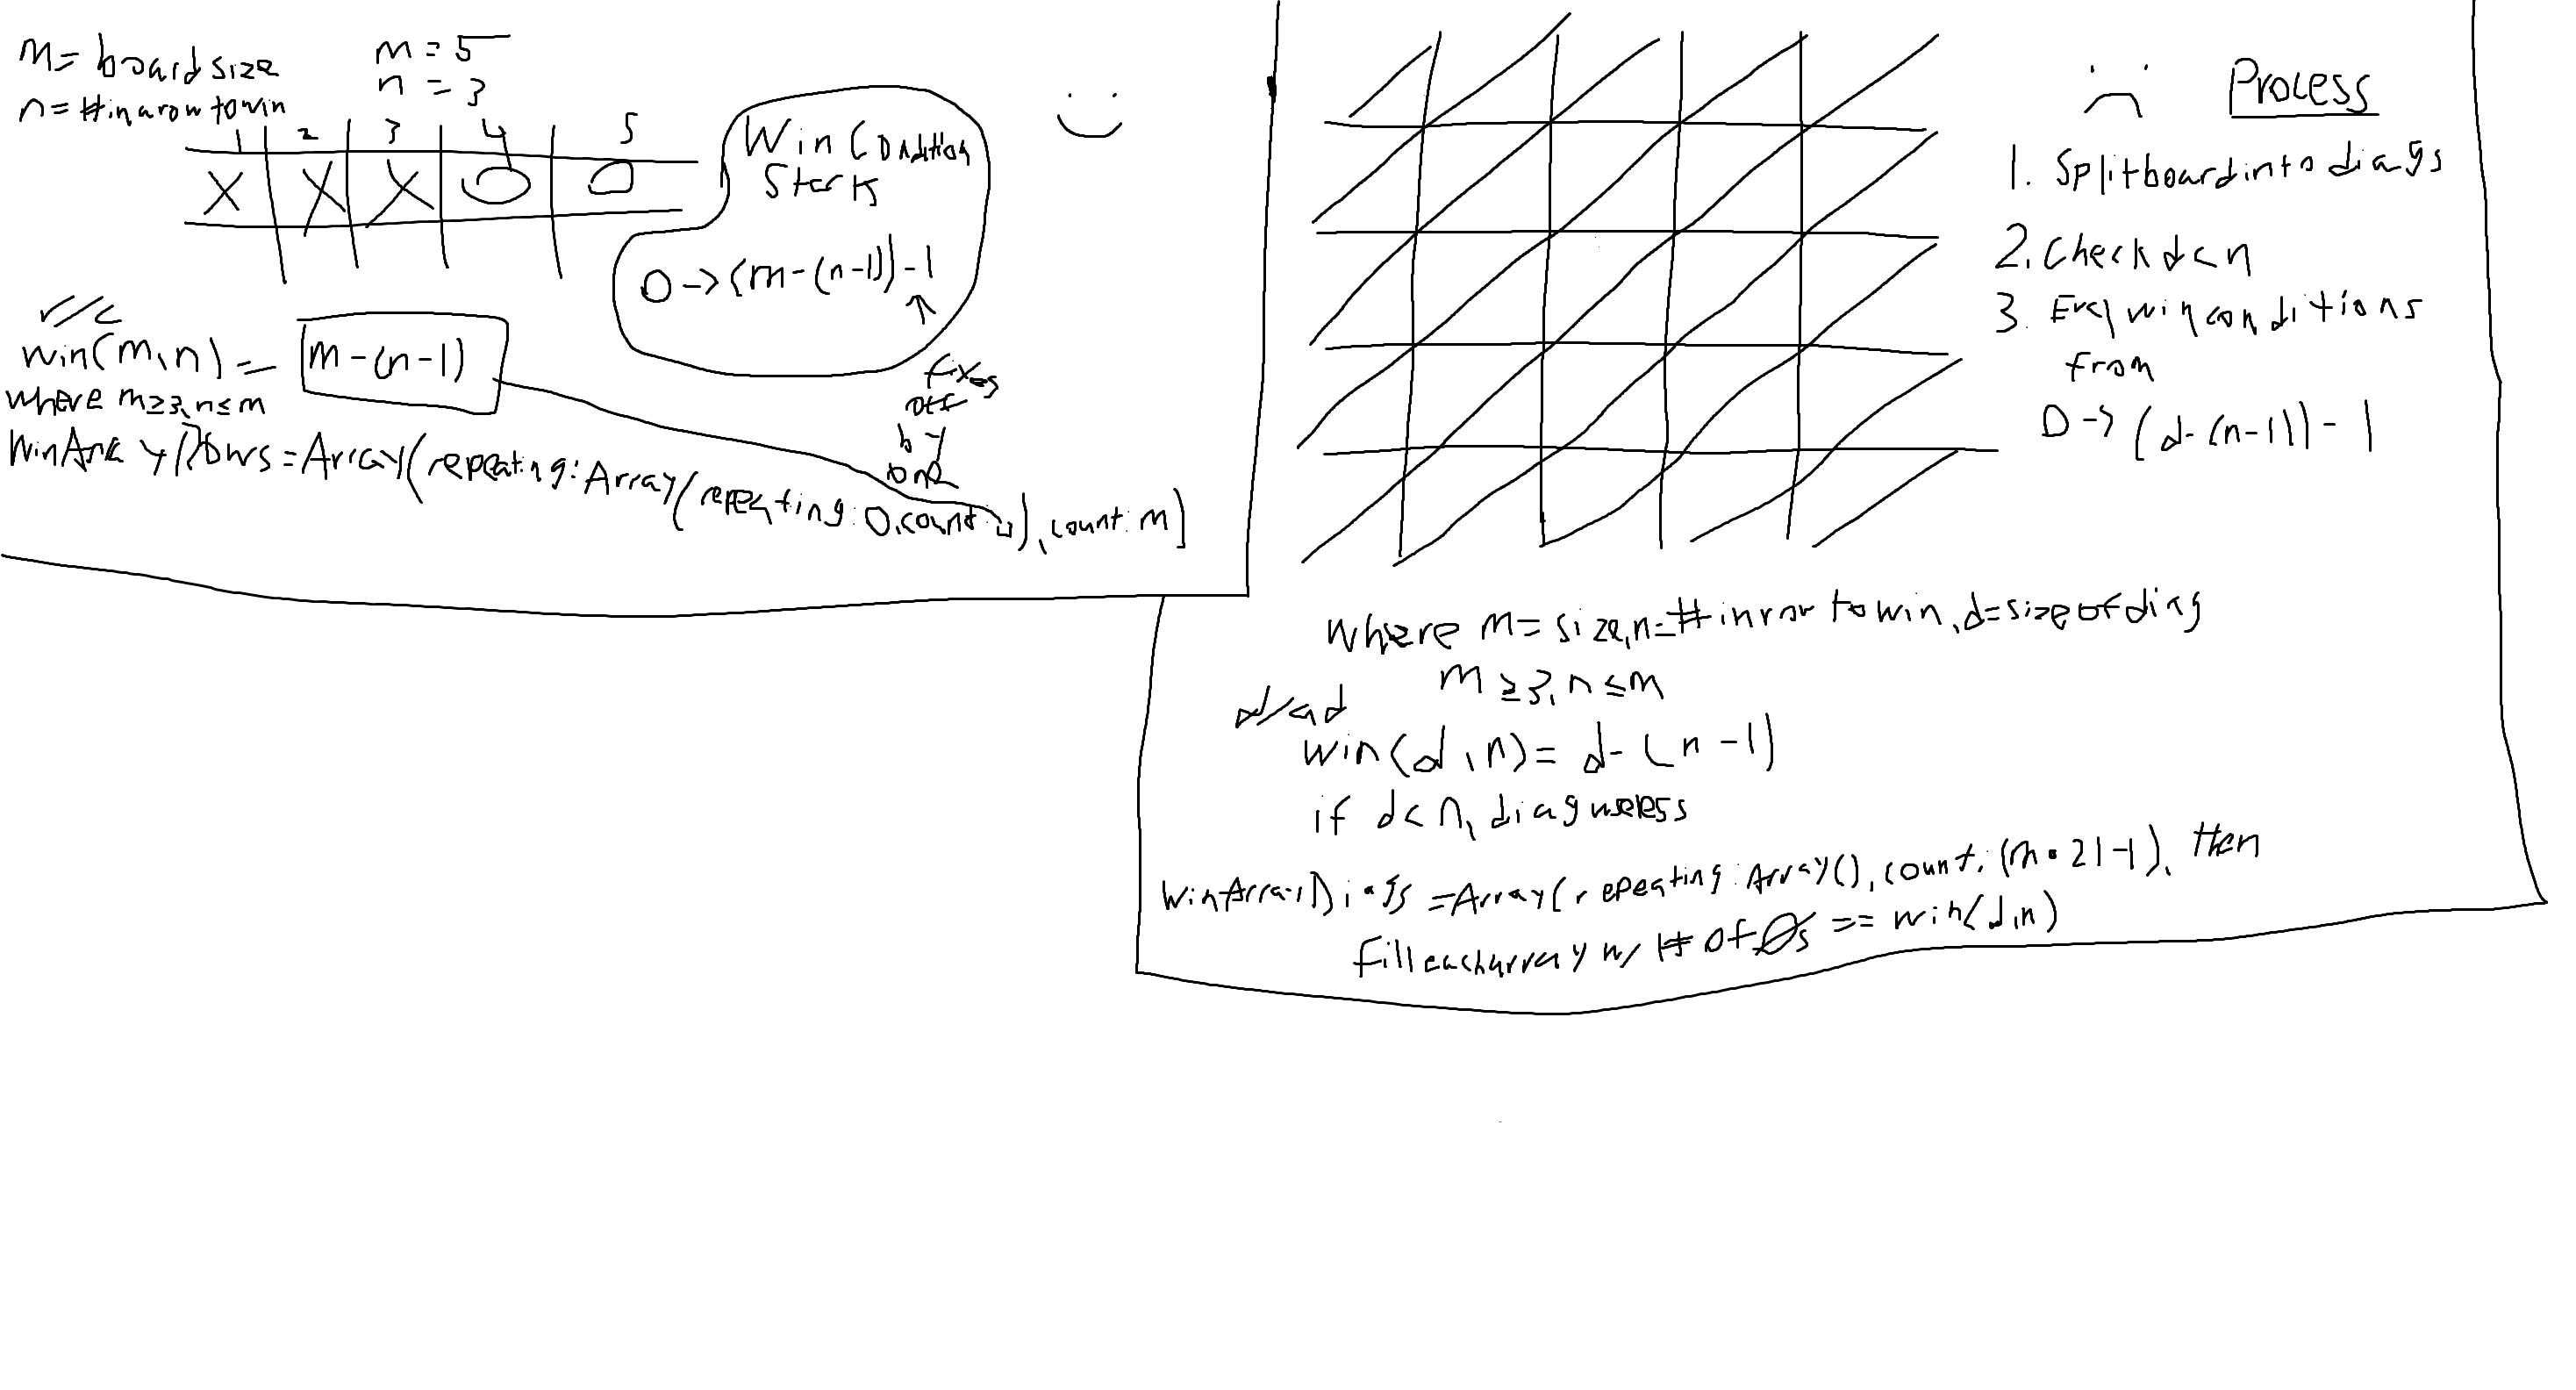 m= board size
n= #inarow to win
m=5
n=3
1 2 3 4 5
X X X O O
Win Condition
Starts
0->(m-(n-1))-1
fixes
off
by
one
r/c
win(m,n)= m-(n-1)
where m≥3,n≤m
WinArrayRows=Array(repeating:Array(repeating:0,count:□),count:m)
Process
1. Split board into diags
2. Check d<n
3. Eval win conditions
from
0->(d-(n-1))-1
where m=size,n=#inrow to win,d=size of diag
m≥3,n≤m
d/ad
win(d,n)=d-(n-1)
if d<n, diag useless
WinArrayDiags=Array(repeating:Array(),count:(m•2)-1), then
Fill each array w/ # of 0s == win(d,n)